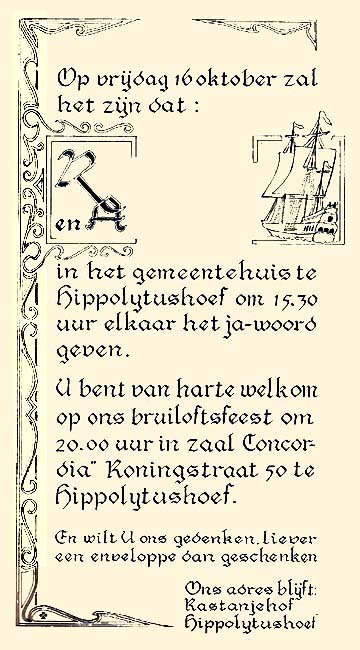 Op vrijdag 16 oktober zal
het zijn dat :
en A
in het gemeentehuis te
Hippolytushoef om 15.30
uur elkaar het ja-woord
geven.
U bent van harte welkom
op ons bruiloftsfeest om
20.00 uur in zaal Concor-
dia" Koningstraat 50 te
Hippolytushoef.
En wilt U ons gedenken, liever
een enveloppe dan geschenken
Ons adres blijft:
Kastanjehof
Hippolytushoef